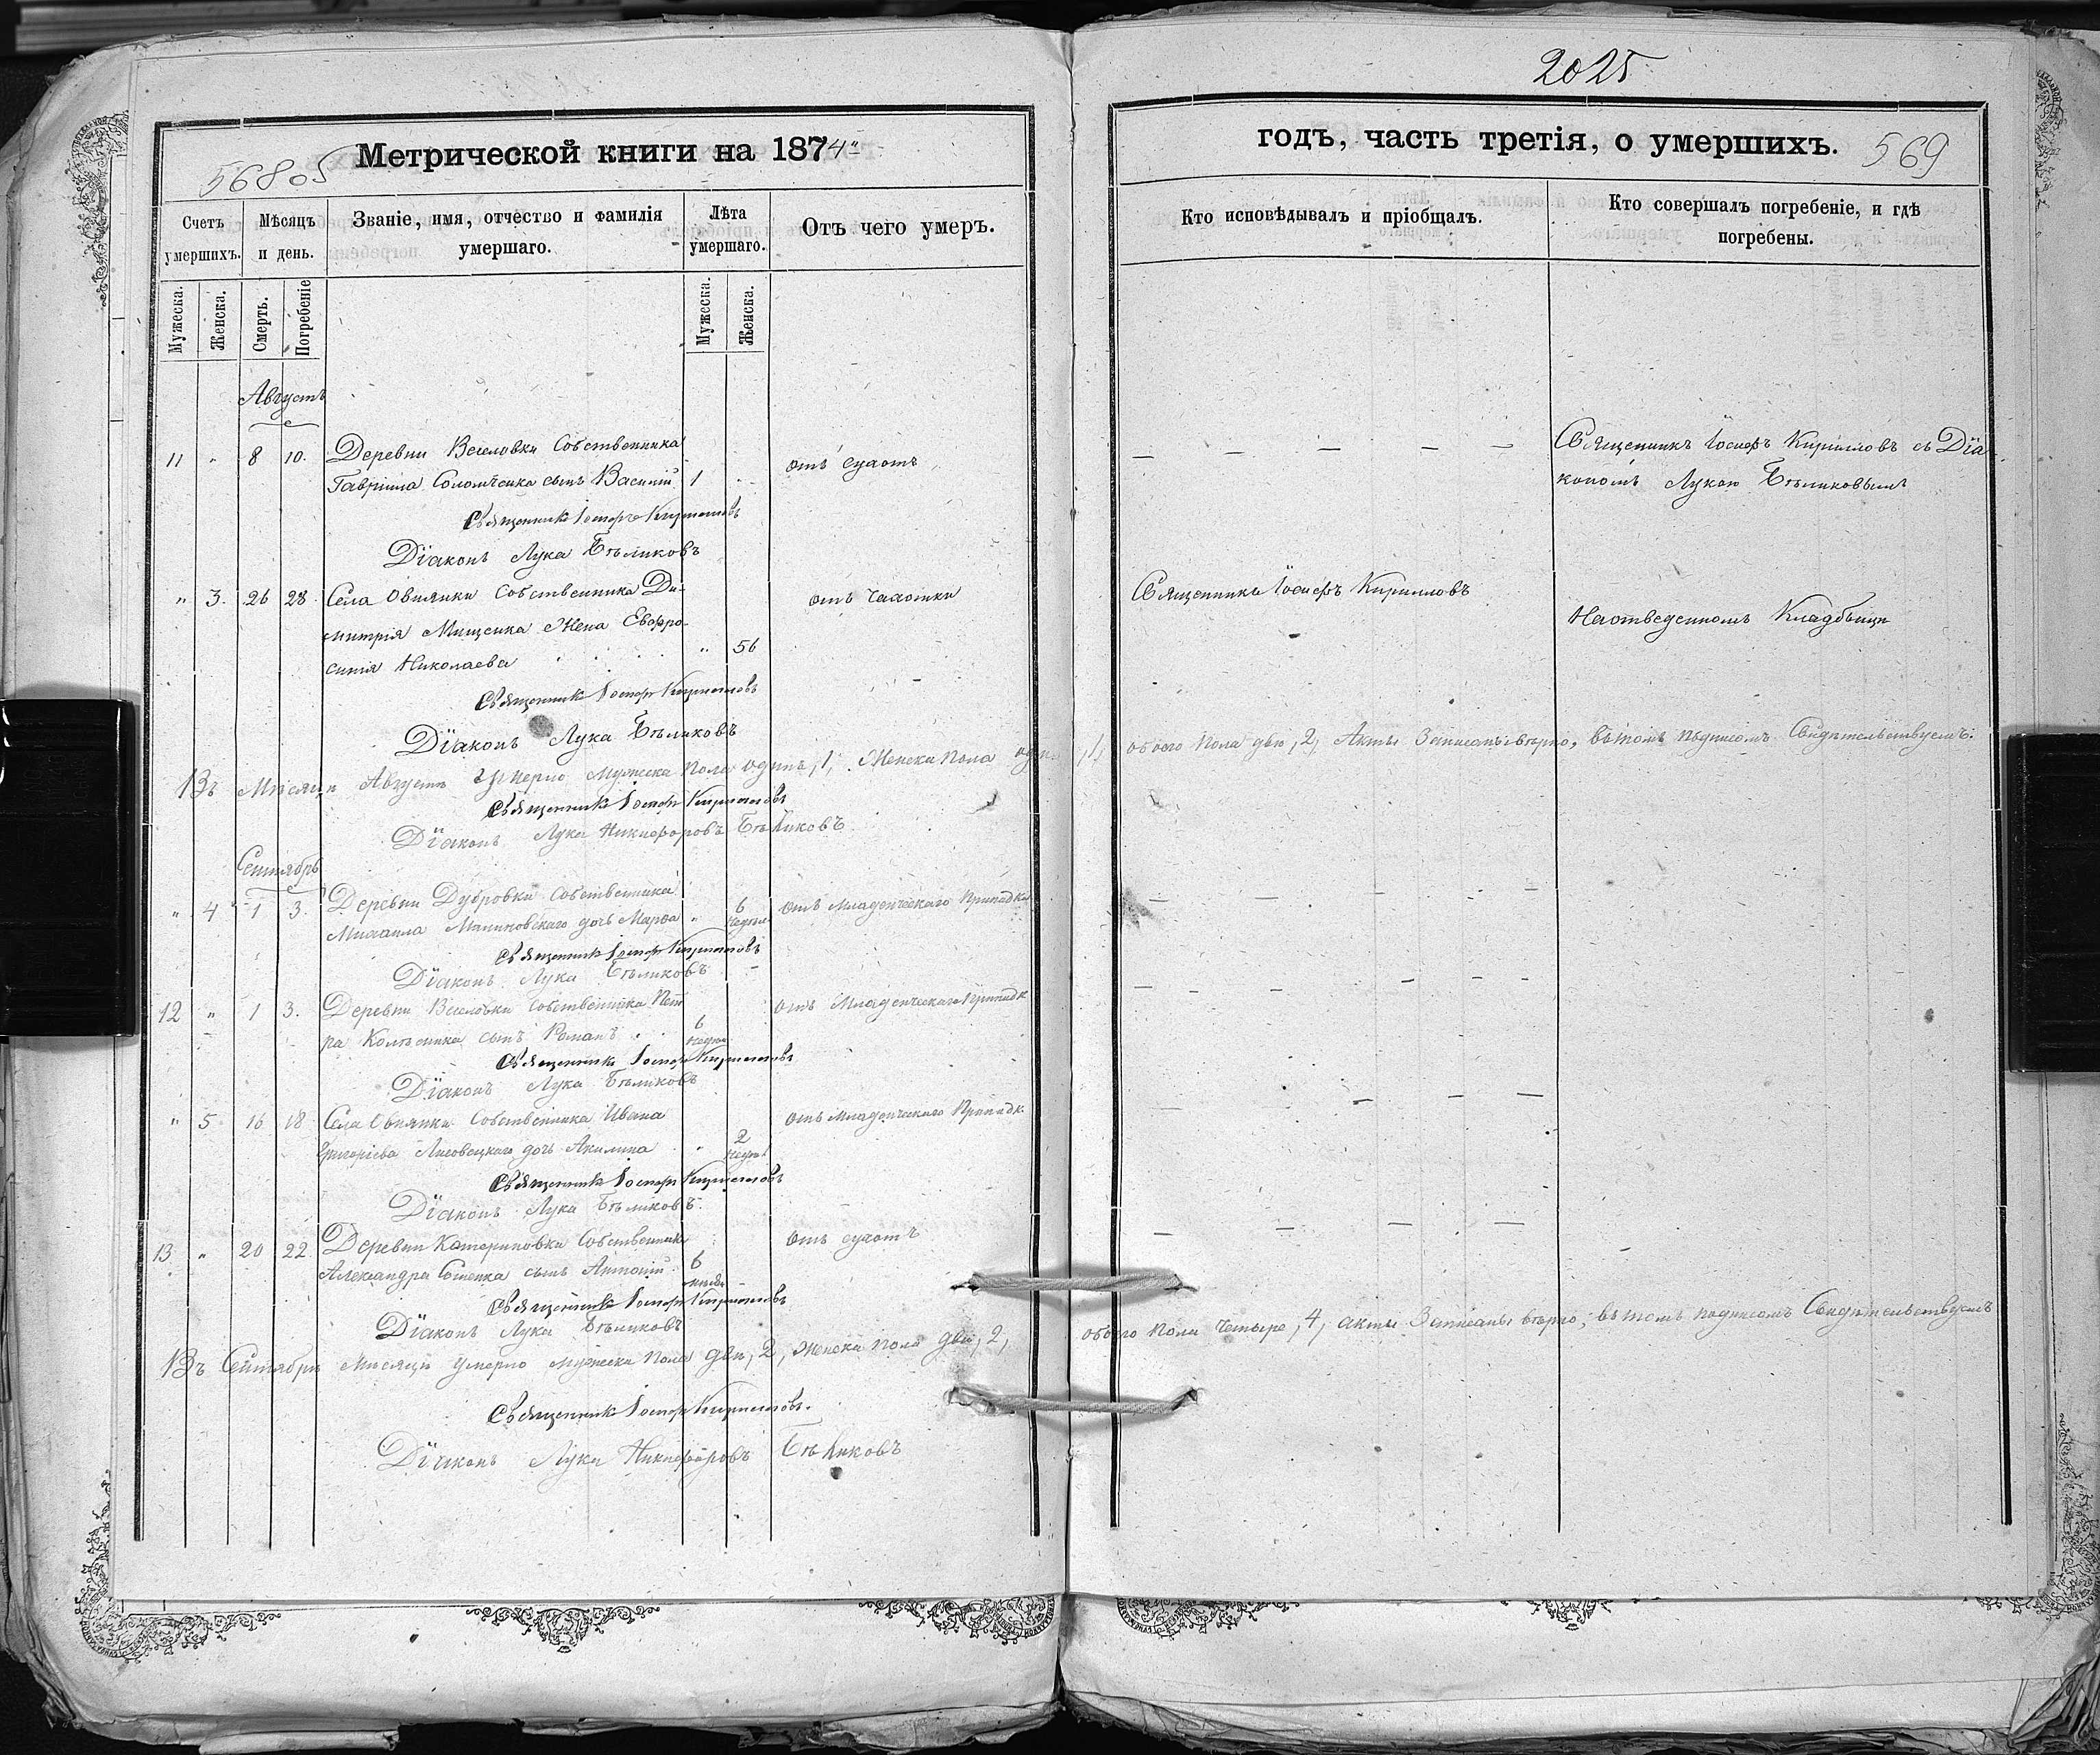 2025
Метрической книги на 1874"
568об
годъ, часть третія, о умершихъ.
569
Счетъ умершихъ.
Мѣсяцъ и день.
Званіе, имя, отчество и фамилія умершаго.
Лѣта умершаго.
Отъ чего умеръ.
Кто исповѣдывалъ и пріобщалъ.
Кто совершалъ погребеніе, и гдѣ погребены.
Мужеска.
Женска.
Смерть.
Погребеніе
Мужеска.
Женска.
Августъ
11 " 8 10. Деревни Веселовки Собственника
Гавріила Соломченка сынъ Василій 1 отъ сухотъ
Священникъ Іосифъ Кирилловъ съ Діа-
кономъ Лукою Бѣликовымъ
Священникъ Іосифъ Кирилловъ
Діаконъ Лука Бѣликовъ
" 3. 26 28. Села Овнянки Собственника Ди-
митрія Мищенка Жена Евфро-
синія Николаева " 56 отъ чахотки
Священникъ Іосифъ Кирилловъ
На отведенномъ Кладбищи
Священникъ Іосифъ Кирилловъ
Діаконъ Лука Бѣликовъ
Въ Мѣсяцѣ Августѣ Умерло Мужеска пола одинъ, 1, Женска пола одн ,1, обоего пола два, 2, Акты Записаны вѣрно, вѣ томъ подписомъ Свидѣтельствуемъ.
Священникъ Іосифъ Кирилловъ
Діаконъ Лука Никифоровъ Бѣликовъ
Сентябрь
" 4 1 3. Деревни Дубровки Собственника
Михаила Малиновскаго дочь Марѳа " 6 недѣль отъ Младенческаго Припадка
Священникъ Іосифъ Кирилловъ
Діаконъ Лука Бѣликовъ
12 " 1 3. Деревни Веселовки Собственника Пет
ра Колѣсника сынъ Романъ 6 недѣл отъ Младенческаго Припадк
Священникъ Іосифъ Кирилловъ
Діаконъ Лука Бѣликовъ
" 5 16 18 Села Овнянки Собственника Ивана
Григорієва Лисовецкаго дочь Акилина " 2 недѣл отъ Младенческаго Припадк
Священникъ Іосифъ Кирилловъ
Діаконъ Лука Бѣликовъ.
13 " 20 22 Деревни Катериновки Собственник
Александра сынъ Антоній 6 отъ сухотъ
Священникъ Іосифъ Кирилловъ
Діаконъ Лука Бѣликовъ
Въ Сентябрѣ Мѣсяцѣ Умерло мужеска пола два, 2, женска пола два, 2, обоего пола четыре, 4, акты Записаны вѣрно, вѣ томъ подписомъ Свидѣтельствуемъ
Священникъ Іосифъ Кирилловъ.
Діаконъ Лука Никифоровъ Бѣликовъ